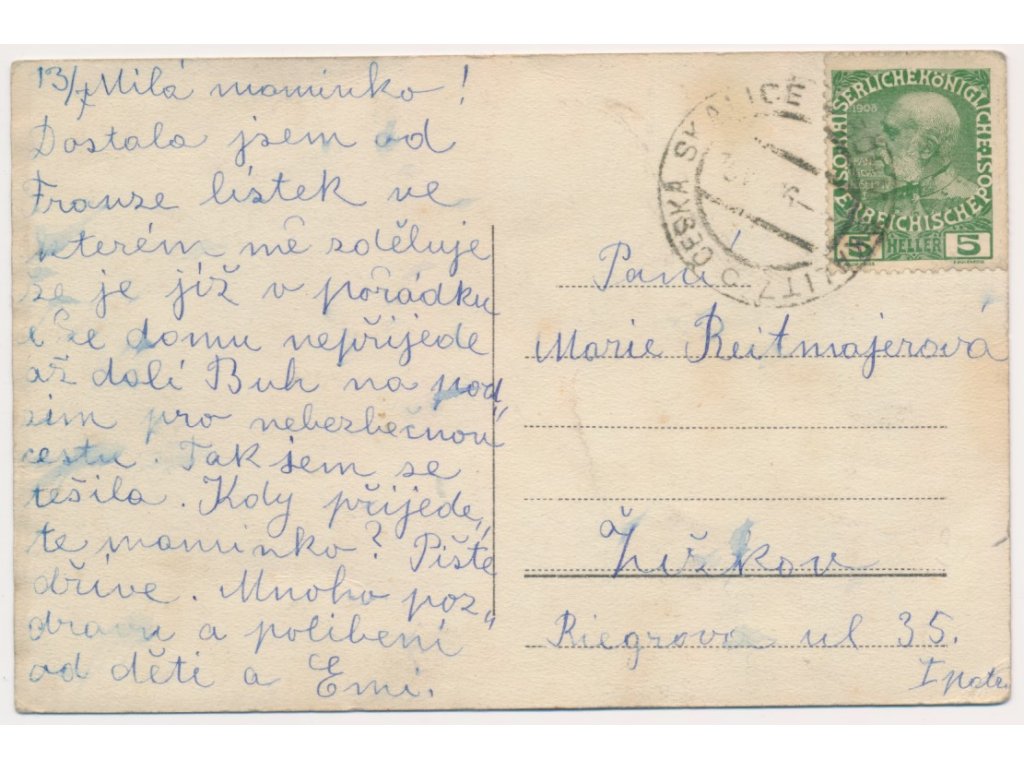 13/7 Milá maminko!
Dostala jsem od
Franze lístek ve
kterém mě zděluje
že je již v pořádku
a že domu nepřijede
až dolí Buh na pod„
zim pro nebezbečnou
cestu. Tak jsem se
těšila. Kdy přijede„
te maminko? Pište
dříve. Mnoho poz„
dravu a políbení
od dětí a Emi.
ČESKÁ SKALICE
KAISERLICHE KÖNIGLICHE
ÖSTERREICHISCHE POST
1908
5 HELLER 5
Paní
Marie Reitmajerová
Žižkov
Riegrova ul 35.
I patr.